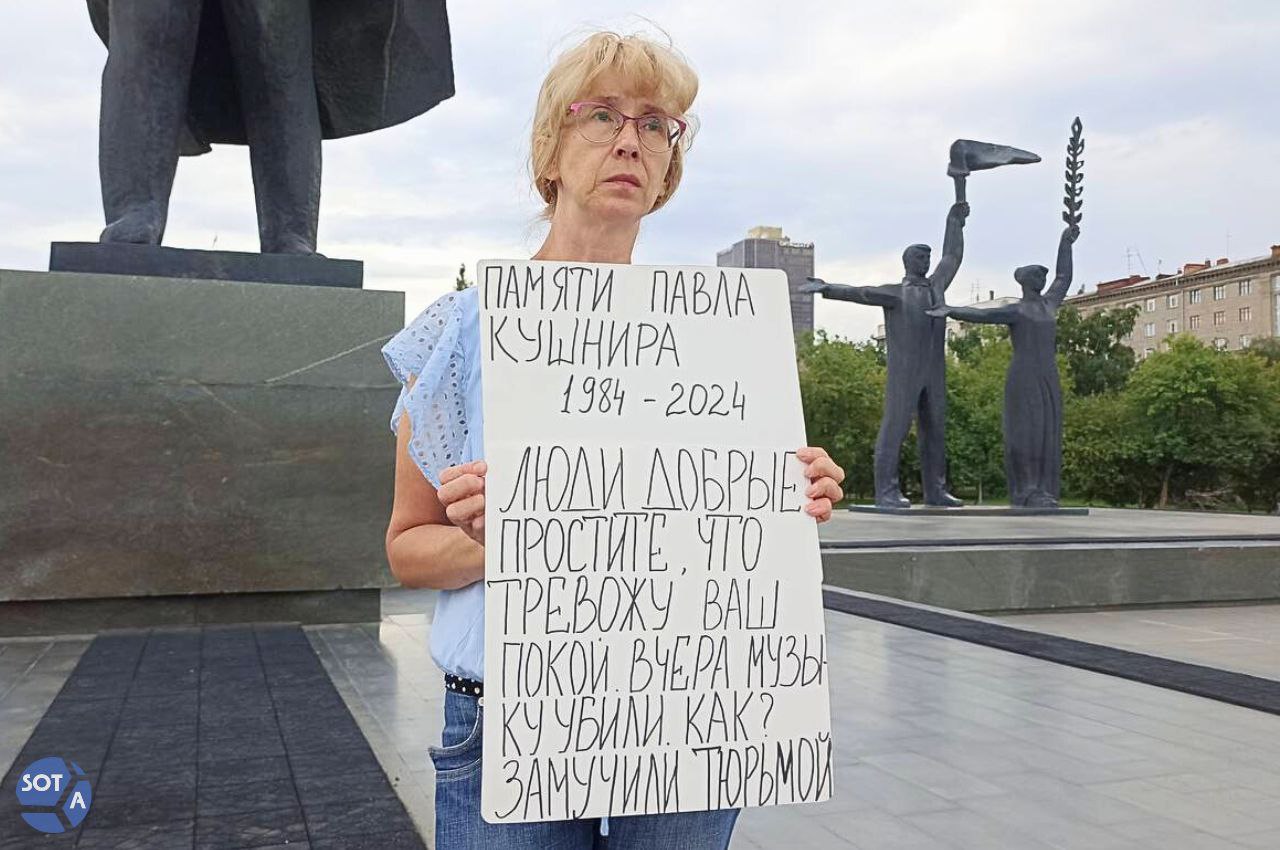 ПАМЯТИ ПАВЛА
КУШНИРА
1984 - 2024
ЛЮДИ ДОБРЫЕ
ПРОСТИТЕ, ЧТО
ТРЕВОЖУ ВАШ
ПОКОЙ. ВЧЕРА МУЗЫ-
КУ УБИЛИ. КАК?
ЗАМУЧИЛИ ТЮРЬМОЙ
SOTA